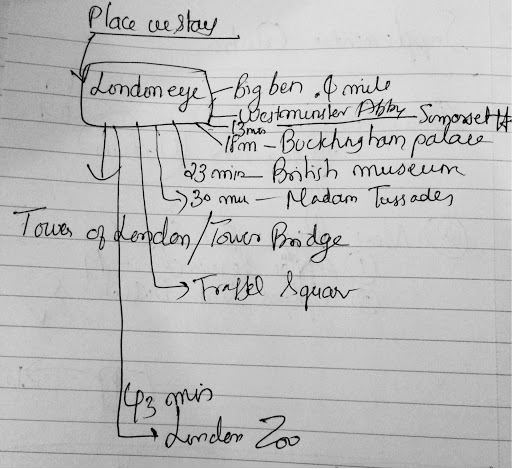 Place we stay
London eye - Big ben .4 mile
Westminster Abby - Somerset H
13 min
18m - Buckhingham palace
23 min - British museum
30 mu - Madam Tussades
Tower of London/Tower Bridge
Squar
43 min
London Zoo